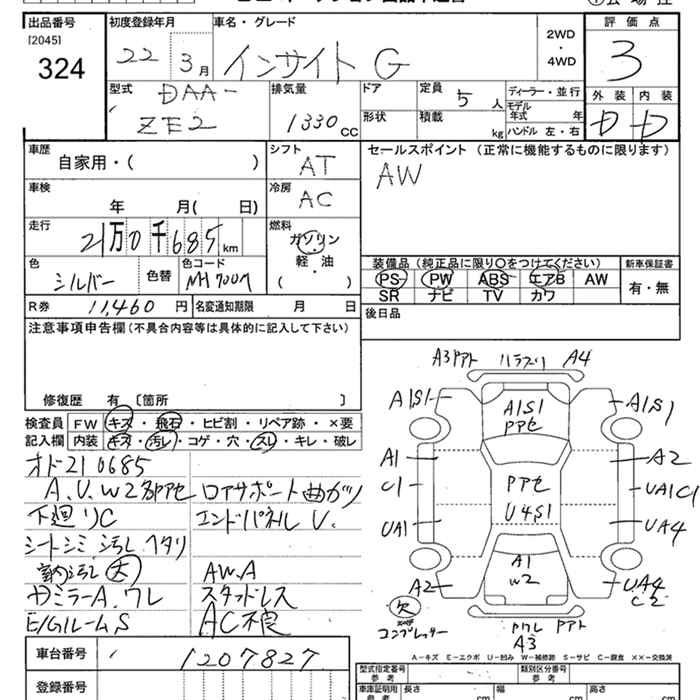 出品番号
[2045]
324
初度登録年月
22 3月
車名・グレード
インサイト G
2WD
・
4WD
評価点
3
外装 内装
D D
型式
DAA-
ZE2
排気量
1330cc
ドア
形状
定員
5人
積載
kg
ディーラー・並行
モデル年式 年
ハンドル 左・右
車歴
自家用・( )
シフト
AT
セールスポイント (正常に機能するものに限ります)
AW
車検
年 月( 日)
冷房
AC
走行
21万0千685km
燃料
ガソリン
軽・油
( )
色
シルバー
色替
色コード
NH700M
装備品 (純正品に限り○をつけてください)
PS PW ABS エアB AW
SR ナビ TV カワ
新車保証書
有・無
R券 11,460円
名変通知期限 月 日
後日品
注意事項申告欄 (不具合内容等は具体的に記入して下さい)
修復歴 有 [箇所 ]
検査員記入欄
FW キズ・飛石・ヒビ割・リペア跡・×要
内装 キズ・汚レ・コゲ・穴・スレ・キレ・破レ
オド210685
A.U.W2部アセ
下廻リC
シートシミ 汚レ ヘタリ
室内汚レ大
ドミラーA.ワレ
E/GルームS
ロアサポート曲ガリ
エンドパネルU.
AW.A
スタッドレス
AC不良
A3アト ハラズリ A4
A1S1
A1S1
アセ
A1S1
A1
C1
UA1
A2
アセ
U4S1
A2
UA1C1
UA4
A1
W2
UA4
C2
欠
コンプレッサー
ワレ アト
A3
A-キズ E-エクボ U-凹み W-補修跡 S-サビ C-腐食 XX-交換済
車台番号
1207827
登録番号
型式指定番号
参考
類別区分番号
参考
車庫証明用
参考
長さ cm
幅 cm
高さ cm